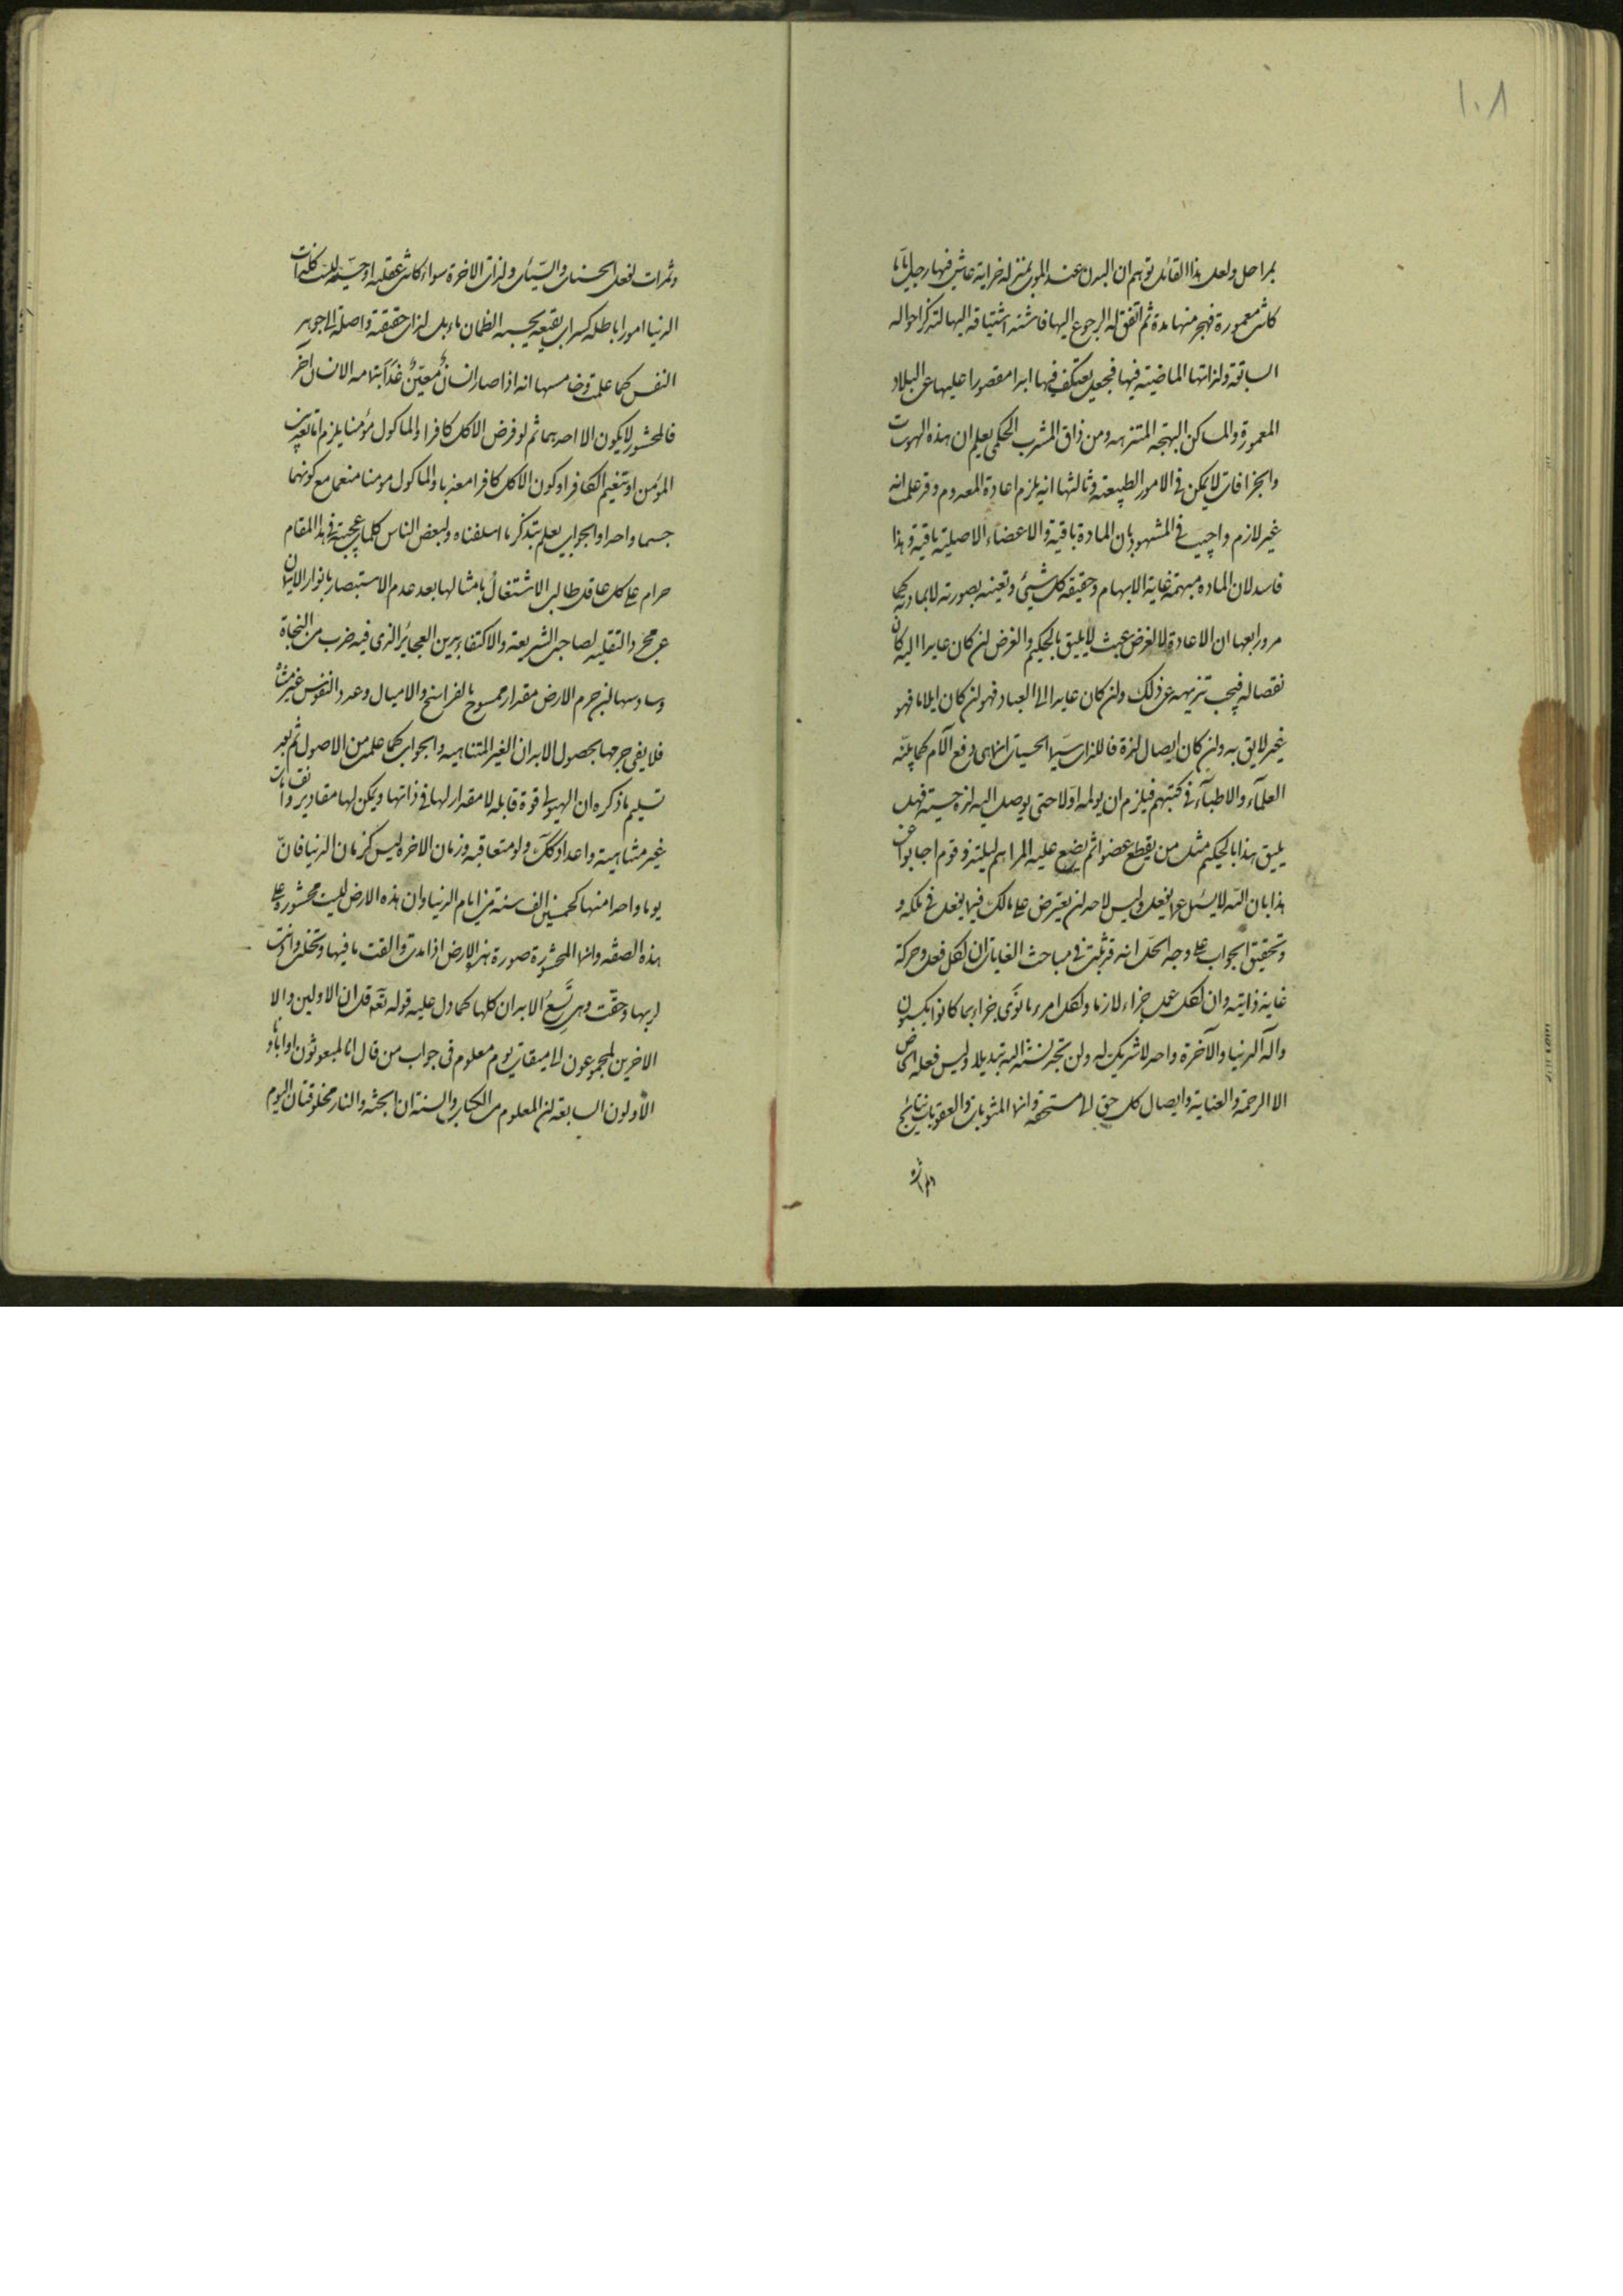 ١٠٨
بمراحل ولعل هذا القائل توهم ان البدن عند الموت بمنزله خرابة عاش فيها رجل اياما
كانت معمورة فهجر منها مدة ثم اتفق له الرجوع اليها فاشتد اشتياقه اليها لتذكر احواله
السابقه ولذاتها الماضيته فيها فجعل يعتكف فيها ابدا مقصورا عليها عن البلاد
المعمورة والمساكن البهجة المتنزهه ومن ذاق المشرب الحكمي يعلم ان هذه الهوسات
والجزافات لا يمكن في الامور الطبيعته وثالثها انه يلزم اعادة المعدوم وقد علمت انه
غير لازم واجيب في المشهور بان المادة باقية والاعضاء الاصلية باقية وهذا
فاسد لان الماده مبهمة غاية الابهام وحقيقه كل شيئ وتعينه بصورته لا بمادته كما
مر ورابعها ان الاعادة لا لغرض عبث لا يليق بالحكيم والغرض ان كان عايدا اليه كان
نقصا له فيجب تنزيهه عن ذلك وان كان عايدا الى العباد فهو ان كان ايلاما فهو
غير لايق به وان كان ايصال لذة فاللذات سيما الحسيات انما هي دفع الآلام كما بينه
العلمآء والاطبآء في كتبهم فيلزم ان يولمه اولا حتى يوصل اليه لذة حسية فهل
يليق هذا بالحكيم مثل من يقطع عضوا ثم يضع عليه المراهم ليلتذ وقوم اجابوا عن
هذا بان الله لا يسئل عما يفعل وليس لاحد ان يعترض على مالك فيما يفعل في ملكه و
وتحقيق الجواب على وجه الحل انه قد ثبت في مباحث الغايات ان لكل فعل وحركة
غاية ذاتيه وان لكل عمل جزاء لازما ولكل امرء ما نوى جزاء بما كانوا يكسبون
واله الدنيا والآخرة واحد لا شريك له ولن تجد لسنة الله تبديلا وليس فعله الخاص
الا الرحمة والعناية وايصال كل حق الى مستحقه وانما المثوبات والعقوبات نتايج
وثمرات
وثمرات لفعل الحسنات والسيئات ولذات الاخرة سواء كانت عقليه او حسيه ليست كلذات
الدنيا امورا باطله كسراب بقيعة يحسبه الظمان ماء بل لذات حقيقة واصلة الى جوهر
النفس كما علمت وخامسها انه اذا صار انسان معين غذاء بتمامه لانسان آخر
فالمحشور لا يكون الا احدهما ثم لو فرض الاكل كافرا والماكول مؤمنا يلزم اما تعذيب
المؤمن او تنعيم الكافر او كون الاكل كافرا معذبا والماكول مومنا منعما مع كونهما
جسما واحدا والجواب يعلم بتذكر ما اسلفناه ولبعض الناس كلمات عجيبة في هذا المقام
حرام على كل عاقل طالب الاشتغال بامثالها بعد عدم الاستبصار بانوار الايمان
عن مجرد التقليد لصاحب الشريعة والاكتفاء بدين العجائز الذي فيه ضرب من النجاة
وسادسها ان جرم الارض مقدار ممسوح بالفراسخ والاميال وعدد النفوس غير متناه
فلا يفي جرمها بحصول الابدان الغير المتناهيه والجواب كما علمت من الاصول ثم بعد
تسليم ما ذكره ان الهيولى قوة قابله لا مقدار لها في ذاتها ويمكن لها مقادير وانقسامات
غير متناهية واعداد كك ولو متعاقبه وزمان الاخره ليس كزمان الدنيا فان
يوما واحدا منها كخمسين الف سنة من ايام الدنيا وان هذه الارض ليست محشورة على
هذه الصفه وانما المحشورة صورة هذه الارض اذا مدت والقت ما فيها وتخلت واذنت
لربها وحقت وهي تسع الابدان كلها كما دل عليه قوله تعه قل ان الاولين والا
الاخرين لمجموعون الى ميقات يوم معلوم في جواب من قال ائنا لمبعوثون او اباؤنا
الاولون السابعة ان المعلوم من الكتاب والسنة ان الجنه والنار مخلوقتان اليوم